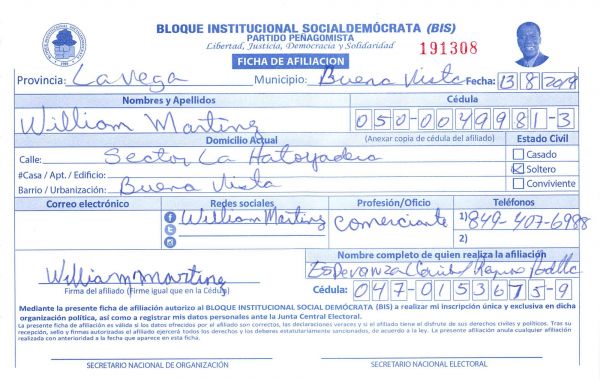 BLOQUE INSTITUCIONAL SOCIALDEMÓCRATA (BIS)
PARTIDO PEÑAGOMISTA
Libertad, Justicia, Democracia y Solidaridad
191308
FICHA DE AFILIACION
Provincia: La Vega Municipio: Buena Vista Fecha: 13/8/2019
Nombres y Apellidos Cédula
William Martinez 050-0049981-3
Domicilio Actual (Anexar copia de cédula del afiliado) Estado Civil
Calle: Sector La Casado
#Casa / Apt. / Edificio: Soltero
Barrio / Urbanización: Buena Vista Conviviente
Correo electrónico Redes sociales Profesión/Oficio Teléfonos
William Martinez comerciante 1) 849-407-6988
2)
Nombre completo de quien realiza la afiliación
Esperanza
William Martinez
Firma del afiliado (Firme igual que en la Cédula) Cédula: 047-0153675-9
Mediante la presente ficha de afiliación autorizo al BLOQUE INSTITUCIONAL SOCIAL DEMÓCRATA (BIS) a realizar mi inscripción única y exclusiva en dicha
organización política, así como a registrar mis datos personales ante la Junta Central Electoral.
La presente ficha de afiliación es válida si los datos ofrecidos por el afiliado son correctos, las declaraciones veraces y si el afiliado tiene el disfrute de sus derechos civiles y políticos. Tras su
recepción, sello y firmas autorizadas el afiliado ejercerá todos los derechos y los deberes estatutariamente sancionados, de acuerdo a la ley. La presente afiliación anula cualquier afiliación
realizada con anterioridad a la fecha que aparece en esta ficha.
SECRETARIO NACIONAL DE ORGANIZACIÓN SECRETARIO NACIONAL ELECTORAL